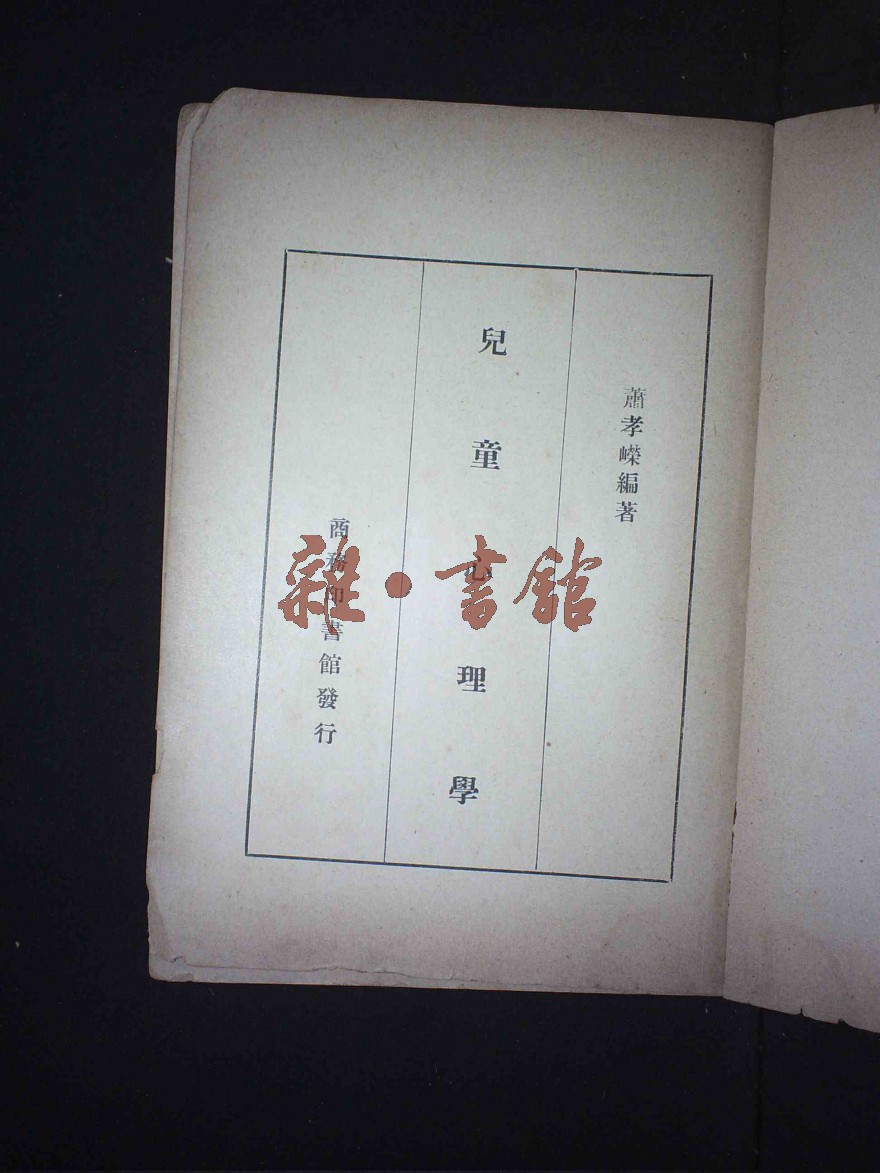 蕭孝嶸編著
兒童心理學
商務印書館發行
雜·書館